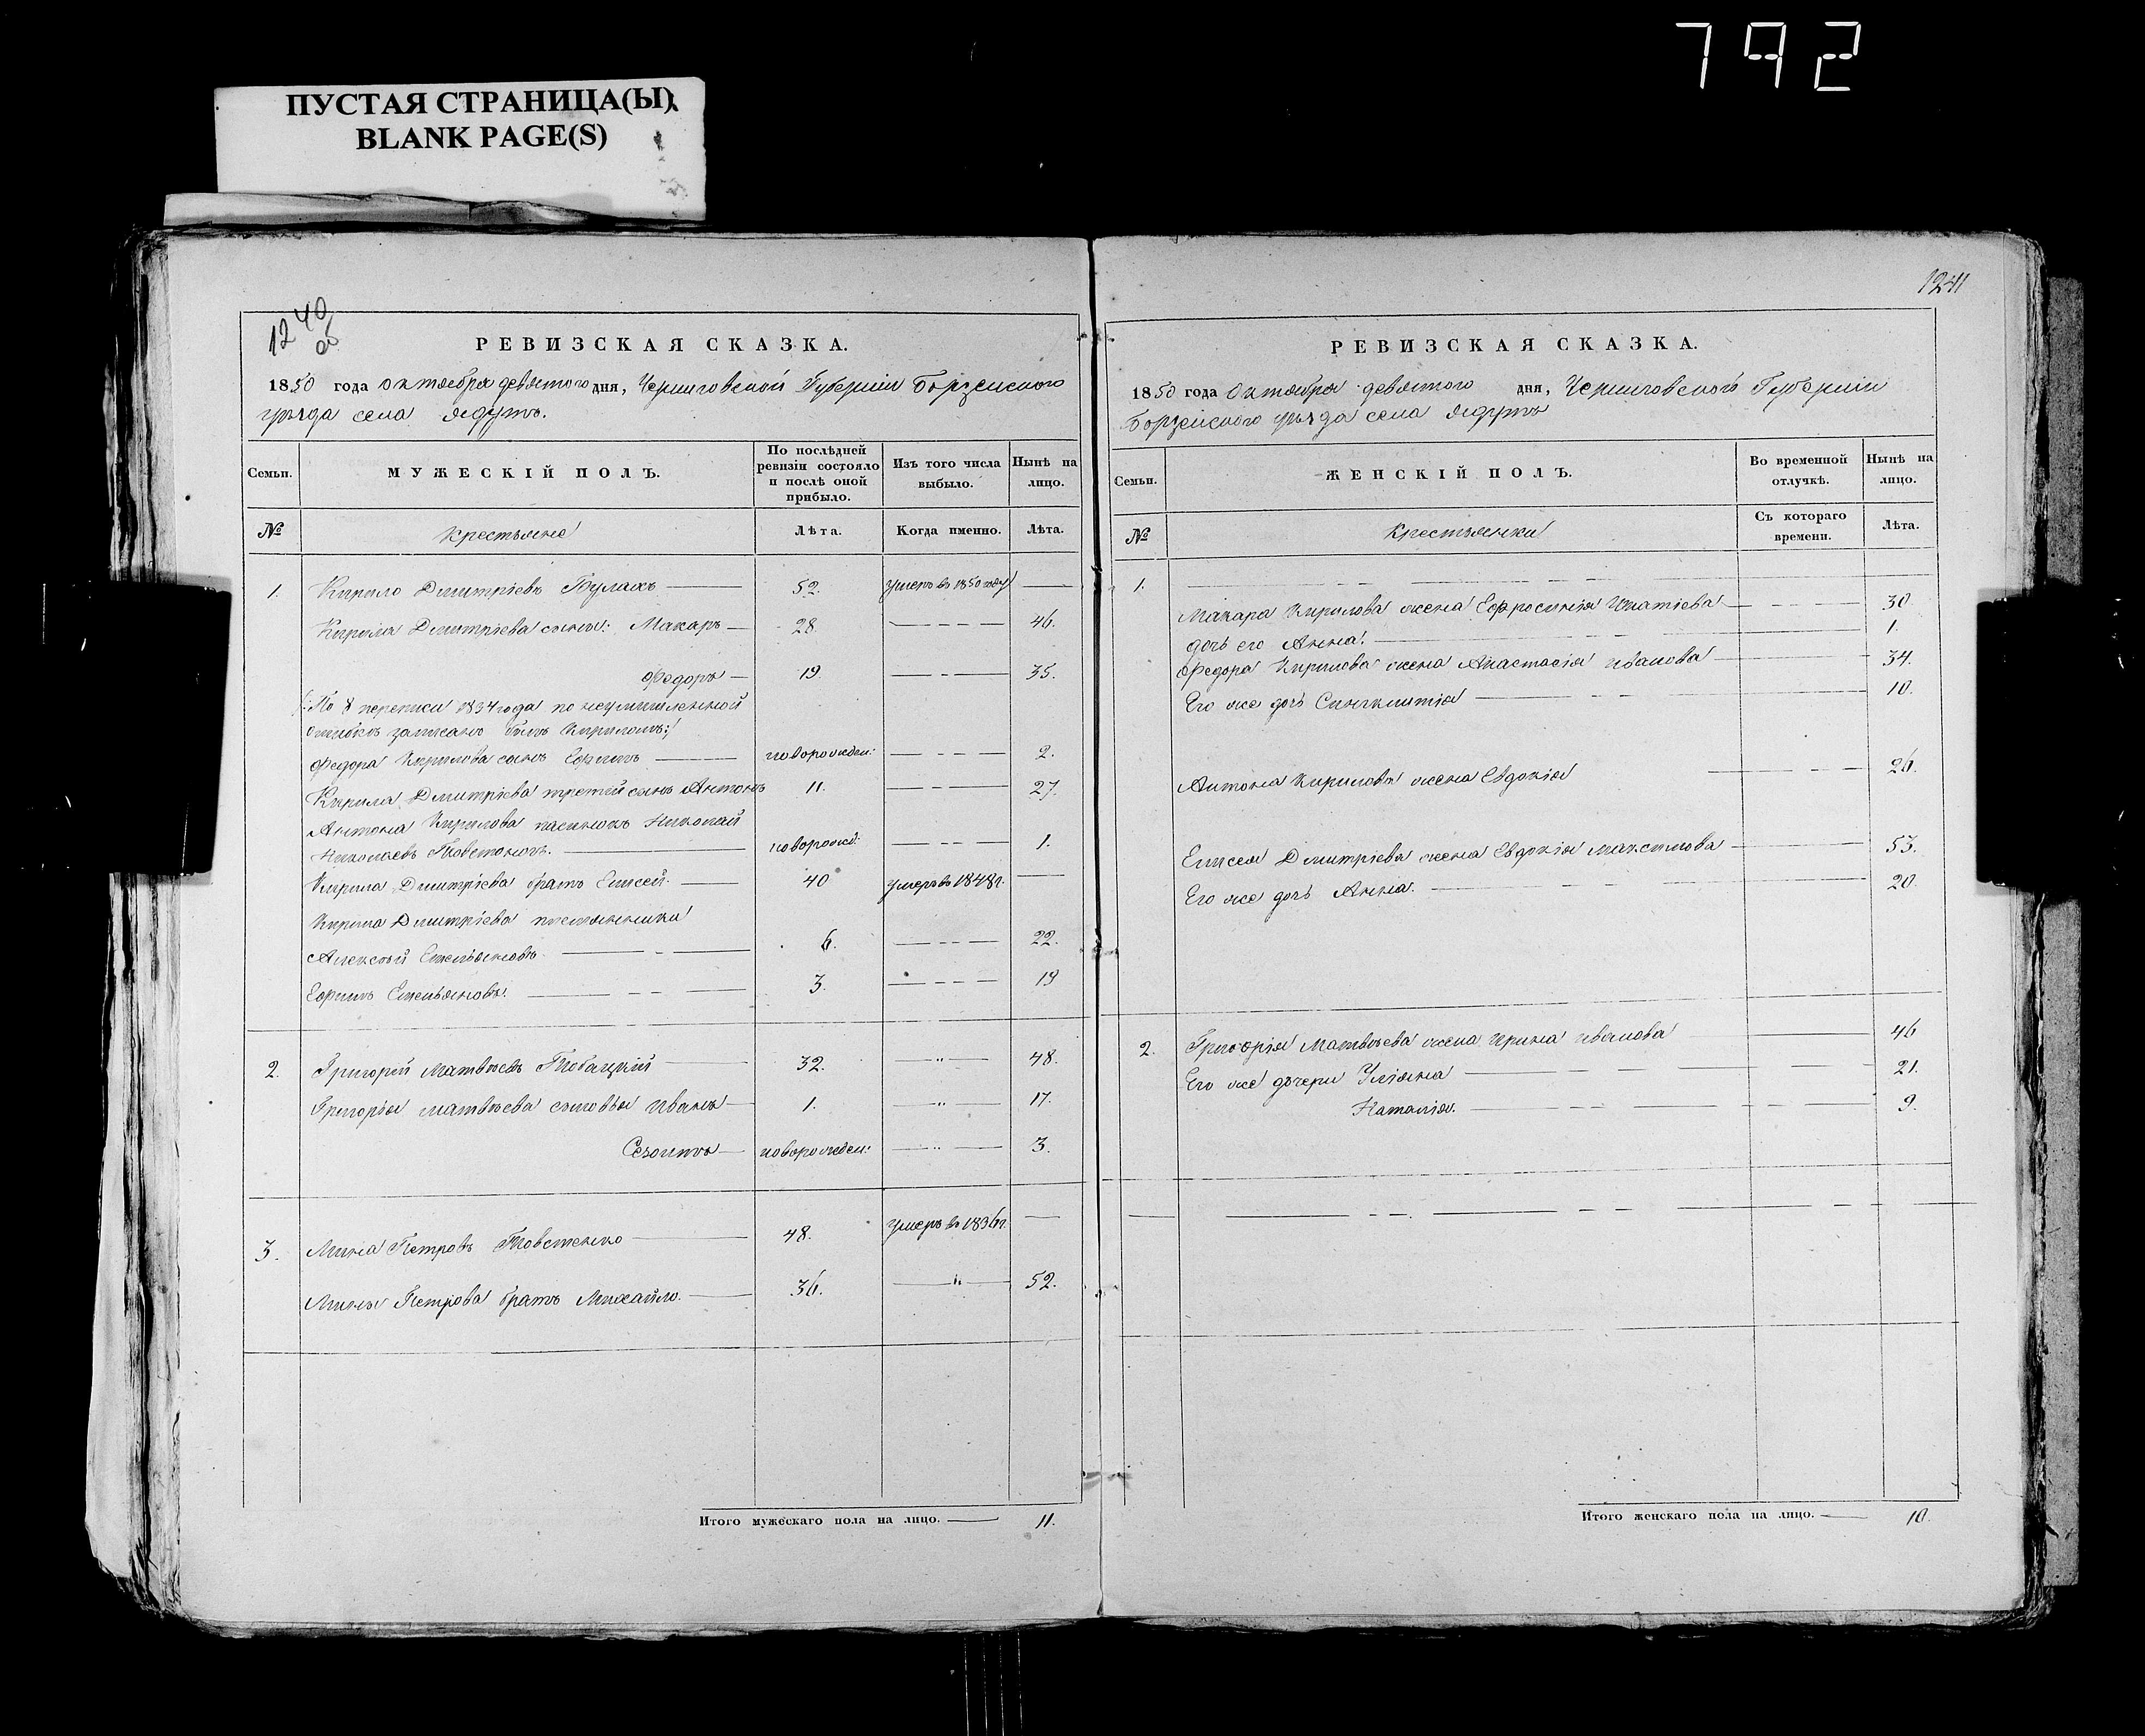 792
ПУСТАЯ СТРАНИЦА(Ы)
BLANK PAGE(S)
1240
об
РЕВИЗСКАЯ СКАЗКА.
1850 года Октября девятого дня, Черниговской Губерніи Борзенского
уѣзда села Ядутъ.
Семьи.
МУЖЕСКІЙ ПОЛЪ.
По послѣдней ревизіи состояло и послѣ оной прибыло.
Изъ того числа выбыло.
Нынѣ на лицо.
№ Крестьяне Лѣта. Когда именно. Лѣта.
1. Кирило Дмитріевъ Булахъ 52. умеръ въ 1850 году
Кирила Дмитріева сыны: Макаръ 28. 46.
Федоръ 19. 35.
/:По 8 переписи 1834 года по неумышленной
ошибкѣ записанъ былъ Кириломъ:/
Федора Кирилова сынъ Ефимъ новорожден: 2.
Кирила Дмитріева третій сынъ Антонъ 11. 27.
Антона Кирилова пасынокъ Николай
Николаевъ новорожд: 1.
Кирила Дмитріева братъ Елисей. 40 умеръ въ 1848 г.
Кирила Дмитріева племянники
Алексѣй Емельяновъ 6. 22.
Ефимъ Емельяновъ. 3. 19
2. Григорій Матвѣевъ 32. 48.
Григорія Матвѣева сыновья Иванъ 1. 17.
Созонтъ новорожден: 3.
3. Мина Петровъ Товстенко 48. умеръ въ 1836 г.
Мины Петрова братъ Михайло. 36. 52.
Итого мужескаго пола на лицо. 11.
1241
РЕВИЗСКАЯ СКАЗКА.
1850 года Октября девятого дня, Черниговской Губерніи
Борзенского уѣзда села Ядутъ
Семьи.
ЖЕНСКІЙ ПОЛЪ.
Во временной отлучкѣ.
Нынѣ на лицо.
№ Крестьянки Съ котораго времени. Лѣта.
1.
Макара Кирилова жена Ефросинія Игнатіева 30.
дочь его Анна. 1.
Федора Кирилова жена Анастасія Иванова 34.
Его же дочь Синклитія 10.
Антона Кирилова жена Евдокія 26.
Елисея Дмитріева жена Евдокія Максимова 53.
Его же дочь Анна. 20.
2. Григорія Матвѣева жена Ирина Иванова 46
Его же дочери Уліяна 21.
Наталія. 9.
Итого женскаго пола на лицо. 10.